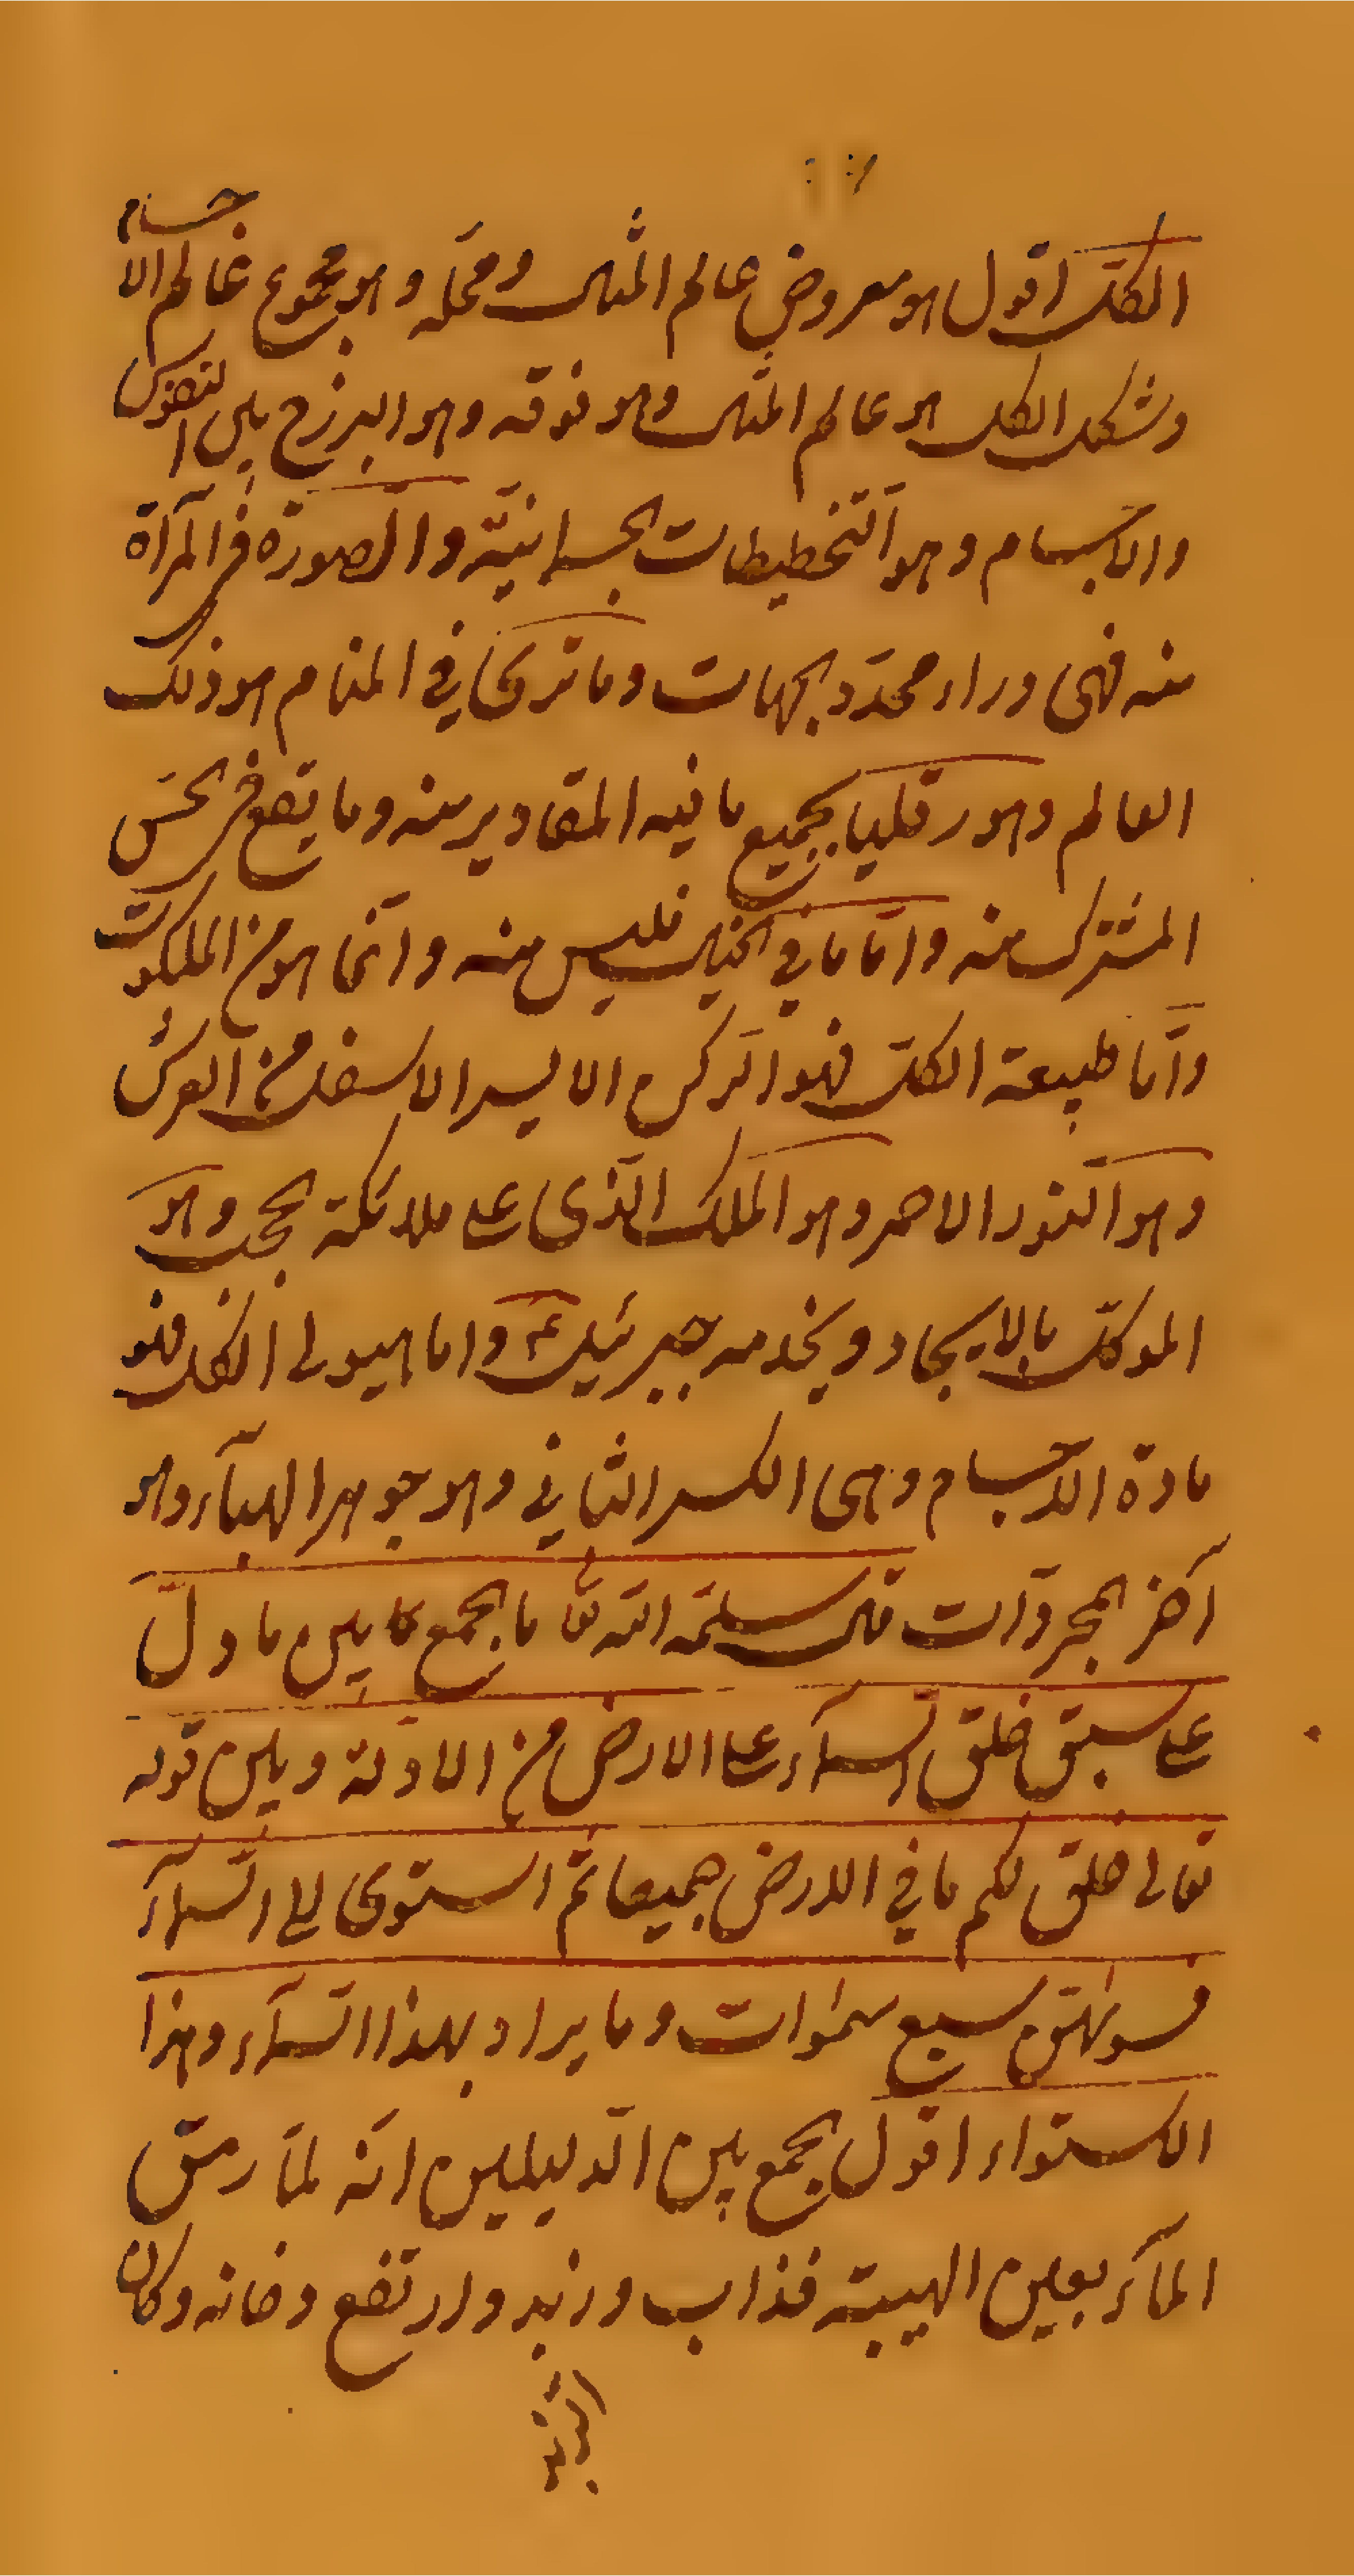 الكل اقول هو معروض عالم المثال ومحله وهو مجموع عالم الاجسام
وشكل الكل هو عالم المثال وهو فوقه وهو البرزخ بين النفوس
والاجسام وهو التخطيطات الجسمانيّة والصورة في المرآة
منه فهى وراء محدّد الجهات وما ترى في المنام هو ذلك
العالم وهورقليا بجميع ما فيه المقادير منه وما يقع في الحسّ
المشترك منه وامّا ما في الخيال فليس منه وانّما هو من الملكوت
وامّا طبيعة الكلّ فهو الرّكن الايسر الاسفل من العرش
وهو النّور الاحمر وهو الملك الّذى على ملائكة الحجب وهو
الموكّل بالايجاد ويخدمه جبرئيل ع واما هيولى الكل فهو
مادة الاجسام وهى الكسر الثاني وهو جوهر الهبآء وهو
آخر المجردات قال سلمه الله تعا ما الجمع كا بين ما دلّ
على سبق خلق السمآء على الارض من الادلة وبين قوله
تعالى خلق لكم ما في الارض جميعا ثمّ استوى الى السّمآء
فسوّيهنّ سبع سموات وما يراد بهذا السّمآء وهذا
الاستواء اقول الجمع بين الدّليلين انّه لمّا رمق
المآء بعين الهيبة فذاب وزبد وارتفع دخانه وكان
الزبد